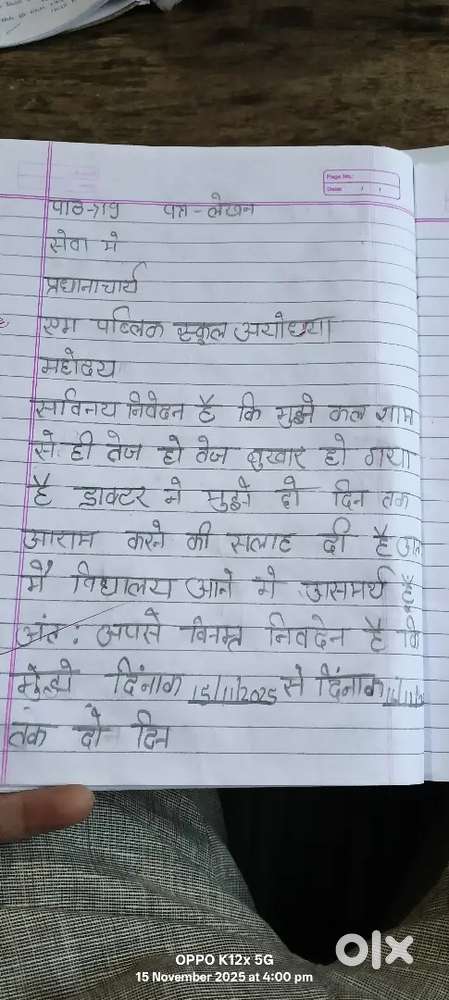 Page No.:
Date: / /
पाठ-19 पत्र-लेखन
सेवा मे
प्रधानाचार्य
एम पब्लिक स्कूल अयोध्या
महोदय
सविनय निवेदन है कि मुझे कल शाम
से ही तेज हो तेज बुखार हो गया
है डाक्टर ने मुझे दो दिन तक
आराम करने की सलाह दी है
मैं विद्यालय आने मे असमर्थ हूँ
अंत. अपसे विनम्र निवदेन है कि
दिंनाक 15/11/2025 से दिंनाक
तक दो दिन
OPPO K12x 5G
15 November 2025 at 4:00 pm
olx